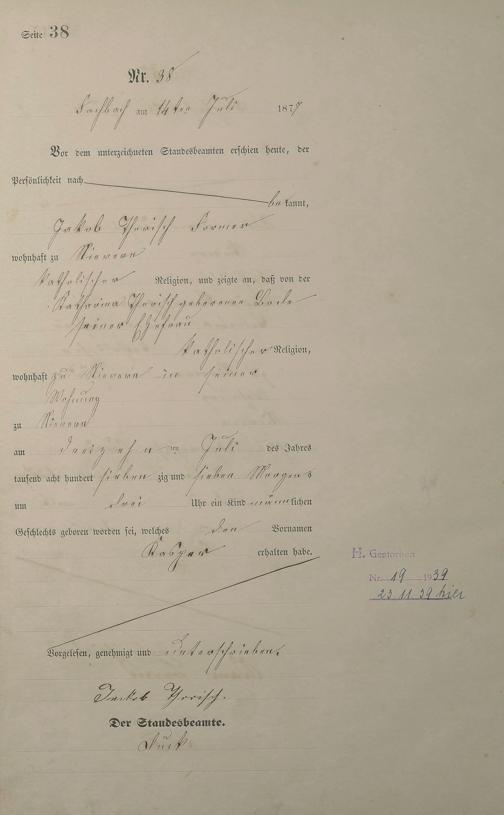 Seite 38
Nr. 38
Fachbach am 14ten Juli 1877
Vor dem unterzeichneten Standesbeamten erschien heute, der
Persönlichkeit nach
bekannt,
Jakob Thorisch Former
wohnhaft zu Nievern
katholischer Religion, und zeigte an, daß von der
Katharina Thorisch geborenen Bode
seiner Ehefrau
katholischer Religion,
wohnhaft zu Nievern in seiner
Wohnung
zu Nievern
am dreizehn ten Juli des Jahres
tausend acht hundert siebenzig und sieben Morgens
um drei Uhr ein Kind männlichen
Geschlechts geboren worden sei, welches den Vornamen
Kaspar erhalten habe.
H. Gestorben
Nr. 19 1939
23.11.39 hier
Vorgelesen, genehmigt und unterschrieben.
Jackob Thorisch.
Der Standesbeamte.